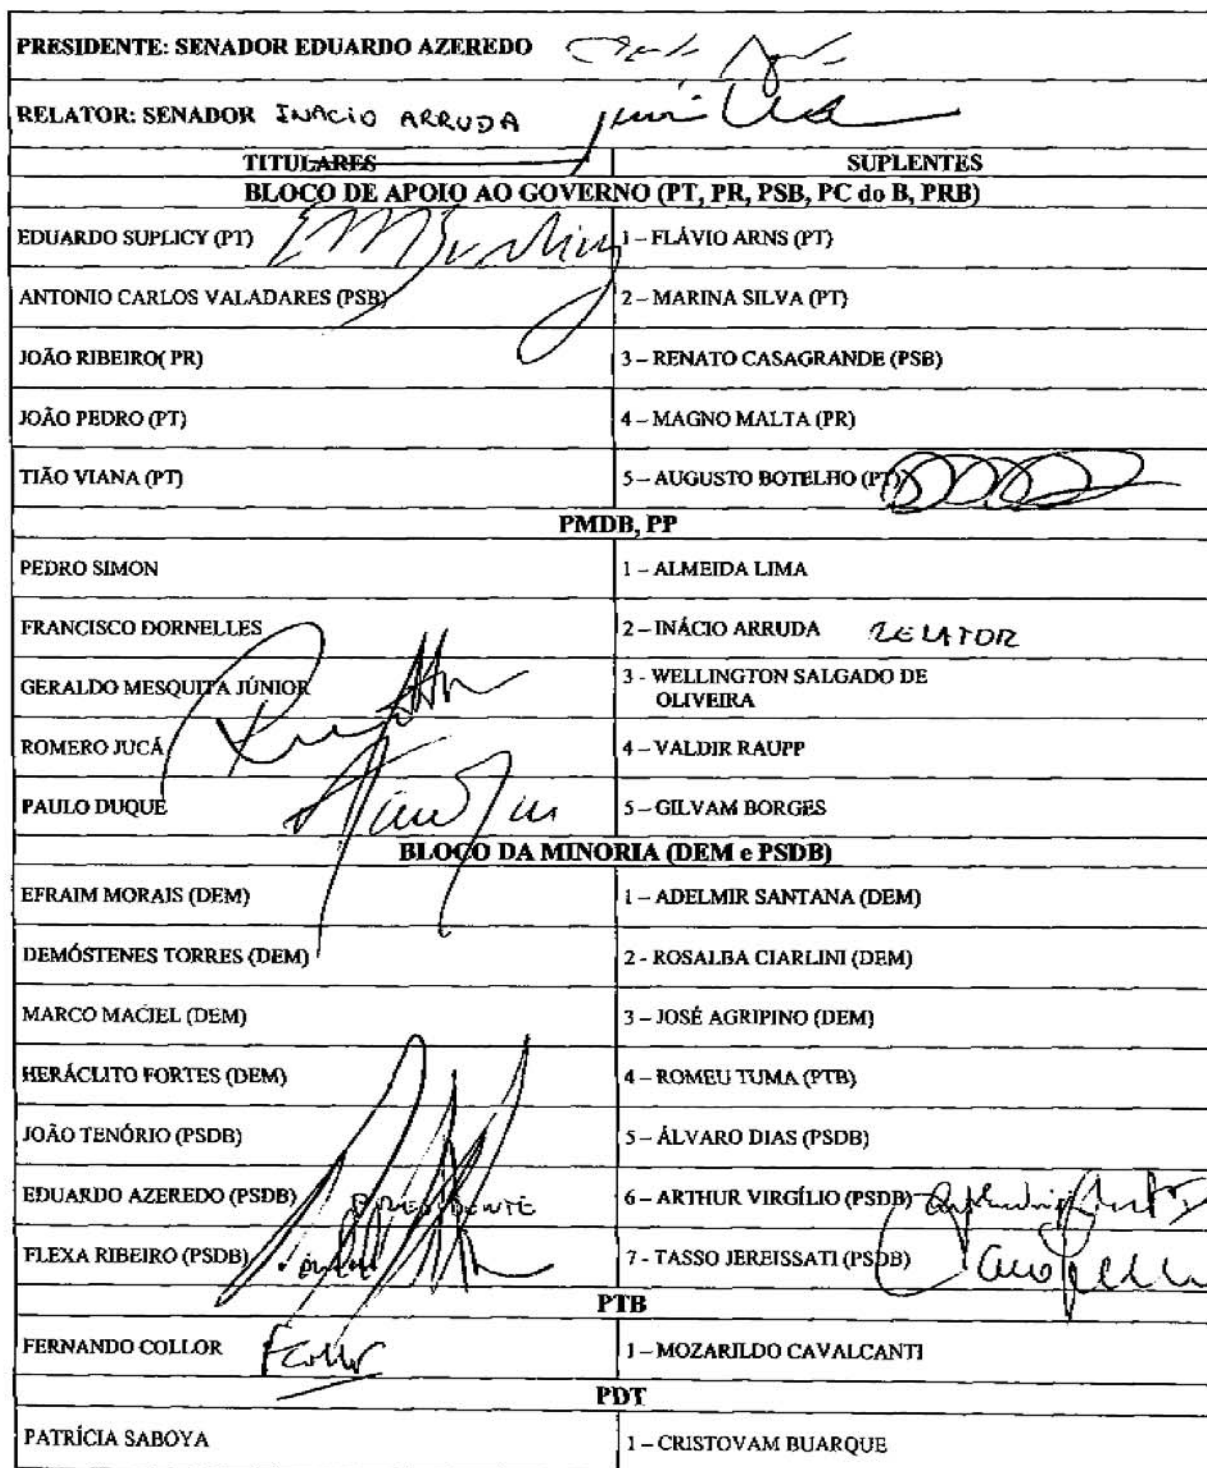 PRESIDENTE: SENADOR EDUARDO AZEREDO
RELATOR: SENADOR INACIO ARRUDA
TITULARES SUPLENTES
BLOCO DE APOIO AO GOVERNO (PT, PR, PSB, PC do B, PRB)
EDUARDO SUPLICY (PT) 1 – FLÁVIO ARNS (PT)
ANTONIO CARLOS VALADARES (PSB) 2 – MARINA SILVA (PT)
JOÃO RIBEIRO( PR) 3 – RENATO CASAGRANDE (PSB)
JOÃO PEDRO (PT) 4 – MAGNO MALTA (PR)
TIÃO VIANA (PT) 5 – AUGUSTO BOTELHO (PT)
PMDB, PP
PEDRO SIMON 1 – ALMEIDA LIMA
FRANCISCO DORNELLES 2 – INÁCIO ARRUDA RELATOR
GERALDO MESQUITA JÚNIOR 3 - WELLINGTON SALGADO DE
OLIVEIRA
ROMERO JUCÁ 4 – VALDIR RAUPP
PAULO DUQUE 5 – GILVAM BORGES
BLOCO DA MINORIA (DEM e PSDB)
EFRAIM MORAIS (DEM) 1 – ADELMIR SANTANA (DEM)
DEMÓSTENES TORRES (DEM) 2 - ROSALBA CIARLINI (DEM)
MARCO MACIEL (DEM) 3 – JOSÉ AGRIPINO (DEM)
HERÁCLITO FORTES (DEM) 4 – ROMEU TUMA (PTB)
JOÃO TENÓRIO (PSDB) 5 – ÁLVARO DIAS (PSDB)
EDUARDO AZEREDO (PSDB) PRESIDENTE 6 – ARTHUR VIRGÍLIO (PSDB)
FLEXA RIBEIRO (PSDB) 7 - TASSO JEREISSATI (PSDB)
PTB
FERNANDO COLLOR FCollor 1 – MOZARILDO CAVALCANTI
PDT
PATRÍCIA SABOYA 1 – CRISTOVAM BUARQUE